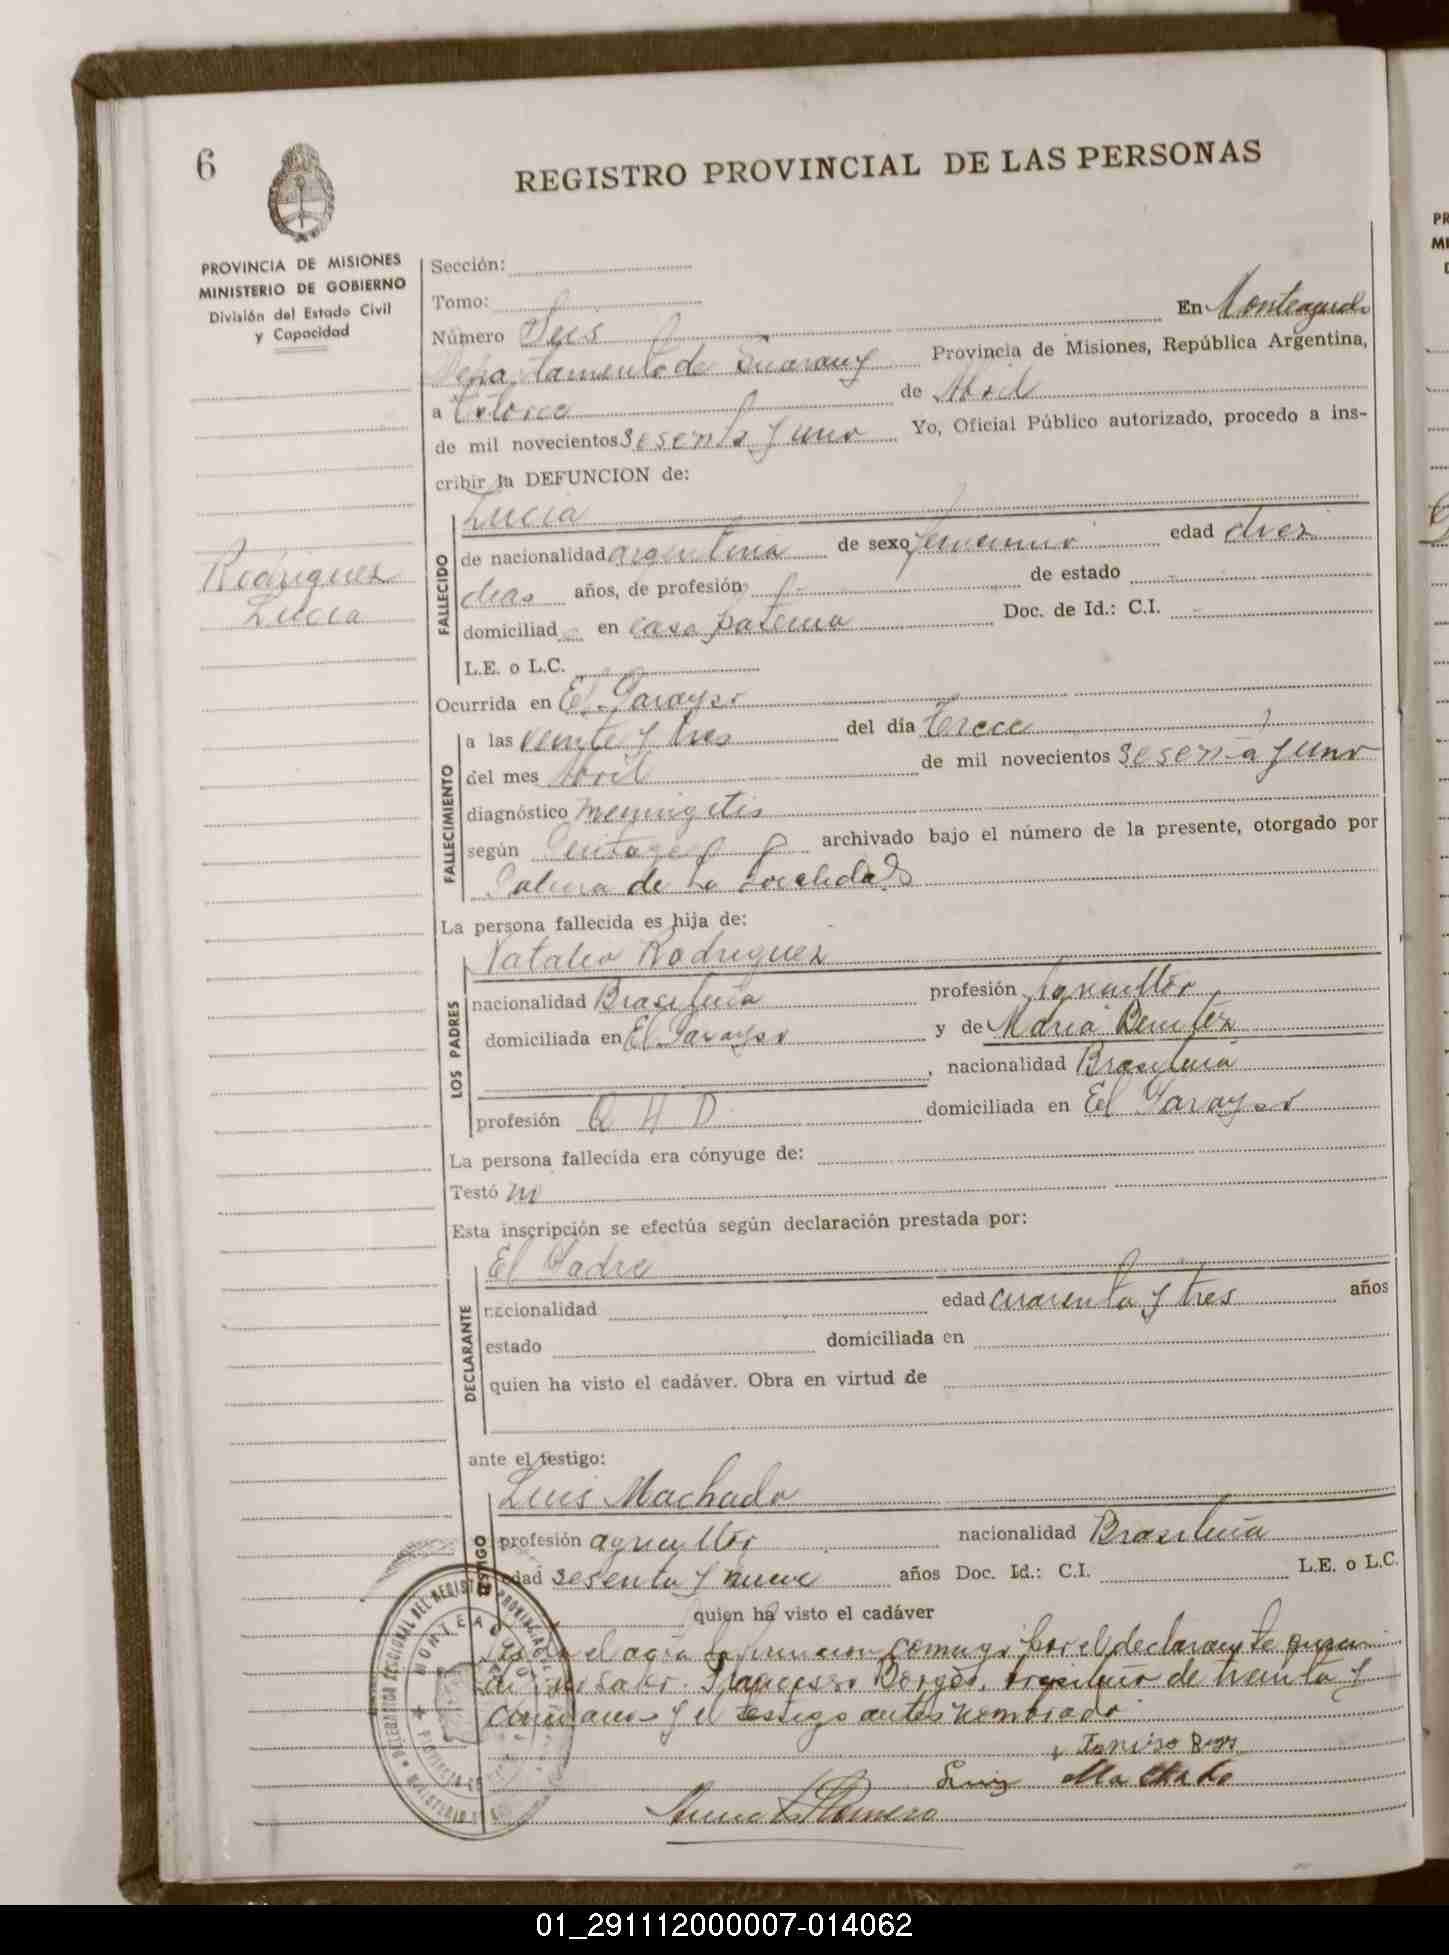 6
REGISTRO PROVINCIAL DE LAS PERSONAS
PROVINCIA DE MISIONES
MINISTERIO DE GOBIERNO
División del Estado Civil
y Capacidad
Sección:
Tomo:
Número Seis En Monteagudo
Departamento de Guarany Provincia de Misiones, República Argentina,
a Catorce de Abril
de mil novecientos sesenta y uno Yo, Oficial Público autorizado, procedo a ins-
cribir la DEFUNCION de:
Rodriguez
Lucia
FALLECIDO
Lucia
de nacionalidad argentina de sexo femenino edad diez
dias años, de profesión de estado
domiciliad en casa paterna Doc. de Id.: C.I.
L.E. o L.C.
Ocurrida en El Parayso
FALLECIMIENTO
a las veinte y tres del día trece
del mes Abril de mil novecientos sesenta y uno
diagnóstico meningitis
según archivado bajo el número de la presente, otorgado por
de la localidad
La persona fallecida es hija de:
LOS PADRES
Natalio Rodriguez
nacionalidad Brasileña profesión agricultor
domiciliada en El Parayso y de Maria Benitez
, nacionalidad Brasileña
profesión Q H D domiciliada en El Parayso
La persona fallecida era cónyuge de:
Testó no
Esta inscripción se efectúa según declaración prestada por:
DECLARANTE
El Padre
nacionalidad edad cuarenta y tres años
estado domiciliada en
quien ha visto el cadáver. Obra en virtud de
ante el testigo:
TESTIGO
Luis Machado
profesión agricultor nacionalidad Brasileña
edad sesenta y nueve años Doc. Id.: C.I. L.E. o L.C.
quien ha visto el cadáver
el acta la firmaron conmigo por el declarante quien
Borges, brasileño de treinta y
años y el testigo antes nombrado
Luiz Machado
Romero
DELEGACION REGIONAL DEL REGISTRO PROVINCIAL
01_291112000007-014062